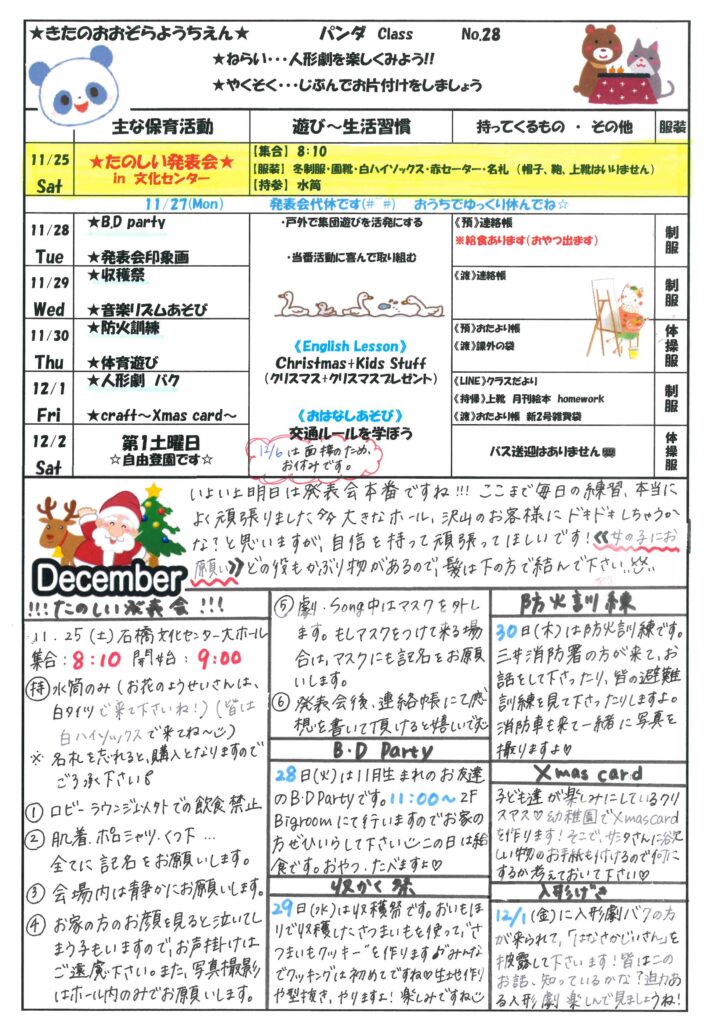 ★きたのおおぞらようちえん★ パンダ Class No.28
★ねらい・・・人形劇を楽しくみよう!!
★やくそく・・・じぶんでお片付けをしましょう
主な保育活動 遊び～生活習慣 持ってくるもの ・ その他 服装
11/25 Sat
★たのしい発表会★
in 文化センター
【集合】 8:10
【服装】 冬制服・園靴・白ハイソックス・赤セーター・名札 (帽子、鞄、上靴はいりません)
【持参】 水筒
11/27(Mon) 発表会代休です(#^^#) おうちでゆっくり休んでね☆
11/28 Tue
★B.D party
★発表会印象画
・戸外で集団遊びを活発にする
・当番活動に喜んで取り組む
《預》連絡帳
※給食あります(おやつ出ます)
制服
11/29 Wed
★収穫祭
★音楽リズムあそび
《渡》連絡帳
制服
11/30 Thu
★防火訓練
★体育遊び
《English Lesson》
Christmas+Kids Stuff
(クリスマス+クリスマスプレゼント)
《預》おたより帳
《渡》課外の袋
体操服
12/1 Fri
★人形劇 バク
★craft～Xmas card～
《おはなしあそび》
交通ルールを学ぼう
《LINE》クラスだより
《持帰》上靴 月刊絵本 homework
《渡》おたより帳 新2号雑費袋
制服
12/2 Sat
第1土曜日
☆自由登園です☆
12/6は面接のため、
お休みです。
バス送迎はありません
体操服
いよいよ明日は発表会本番ですね!!! ここまで毎日の練習、本当に
よく頑張りました 大きなホール、沢山のお客様にドキドキしちゃうか
な?と思いますが、自信を持って頑張ってほしいです!《女の子にお
願い》どの役もかぶり物があるので、髪は下の方で結んで下さい
December
!!! たのしい発表会 !!!
11. 25(土)石橋文化センター大ホール
集合:8:10 開始:9:00
持 水筒のみ(お花のようせいさんは、
白タイツで来て下さいね!)(皆は
白ハイソックスで来てね～)
※ 名札を忘れると、購入となりますので
ごう承下さい
① ロビー ラウンジ での飲食禁止
② 肌着.ポロシャツ.くつ下…
全てに記名をお願いします。
③ 会場内は静かにお願いします。
④ お家の方のお顔を見ると泣いてし
まう子もいますので、お声掛けは
ご遠慮下さい。また、写真撮影
はホール内のみでお願いします。
⑤ 劇.Song中はマスクを外し
ます。もしマスクをつけて来る場
合は、マスクにも記名をお願い
します。
⑥ 発表会後、連絡帳にて感
想を書いて頂けると嬉しいです
B.D Party
28日(火)は11月生まれのお友達
のB.D Partyです。11:00～2F
Bigroomにて行いますのでお家の
方ぜひいらして下さい この日は給
食です。おやつ、たべますよ♡
収かく祭
29日(水)は収穫祭です。おいもほ
りで収穫したさつまいもを使って、“さ
つまいもクッキー”を作ります♪みんな
でクッキングは初めてですね♡生地作り
や型抜き、やりますよ! 楽しみですね
防火訓練
30日(木)は防火訓練です。
三井消防署の方が来て、お
話をして下さったり、皆の避難
訓練を見て下さったりしますよ。
消防車も来て一緒に写真を
撮りますよ♡
Xmas card
子ども達が楽しみにしているクリ
スマス♡幼稚園でXmas card
を作ります! そこで、サンタさんに欲
しい物のお手紙も付けるので何に
するか考えておいて下さい♡
人形げき
12/1(金)に人形劇バクの方
が来られて、「はなさかじいさん」を
披露して下さいます! 皆はこの
お話、知っているかな? 迫力あ
る人形劇 楽しんで見ましょうね!